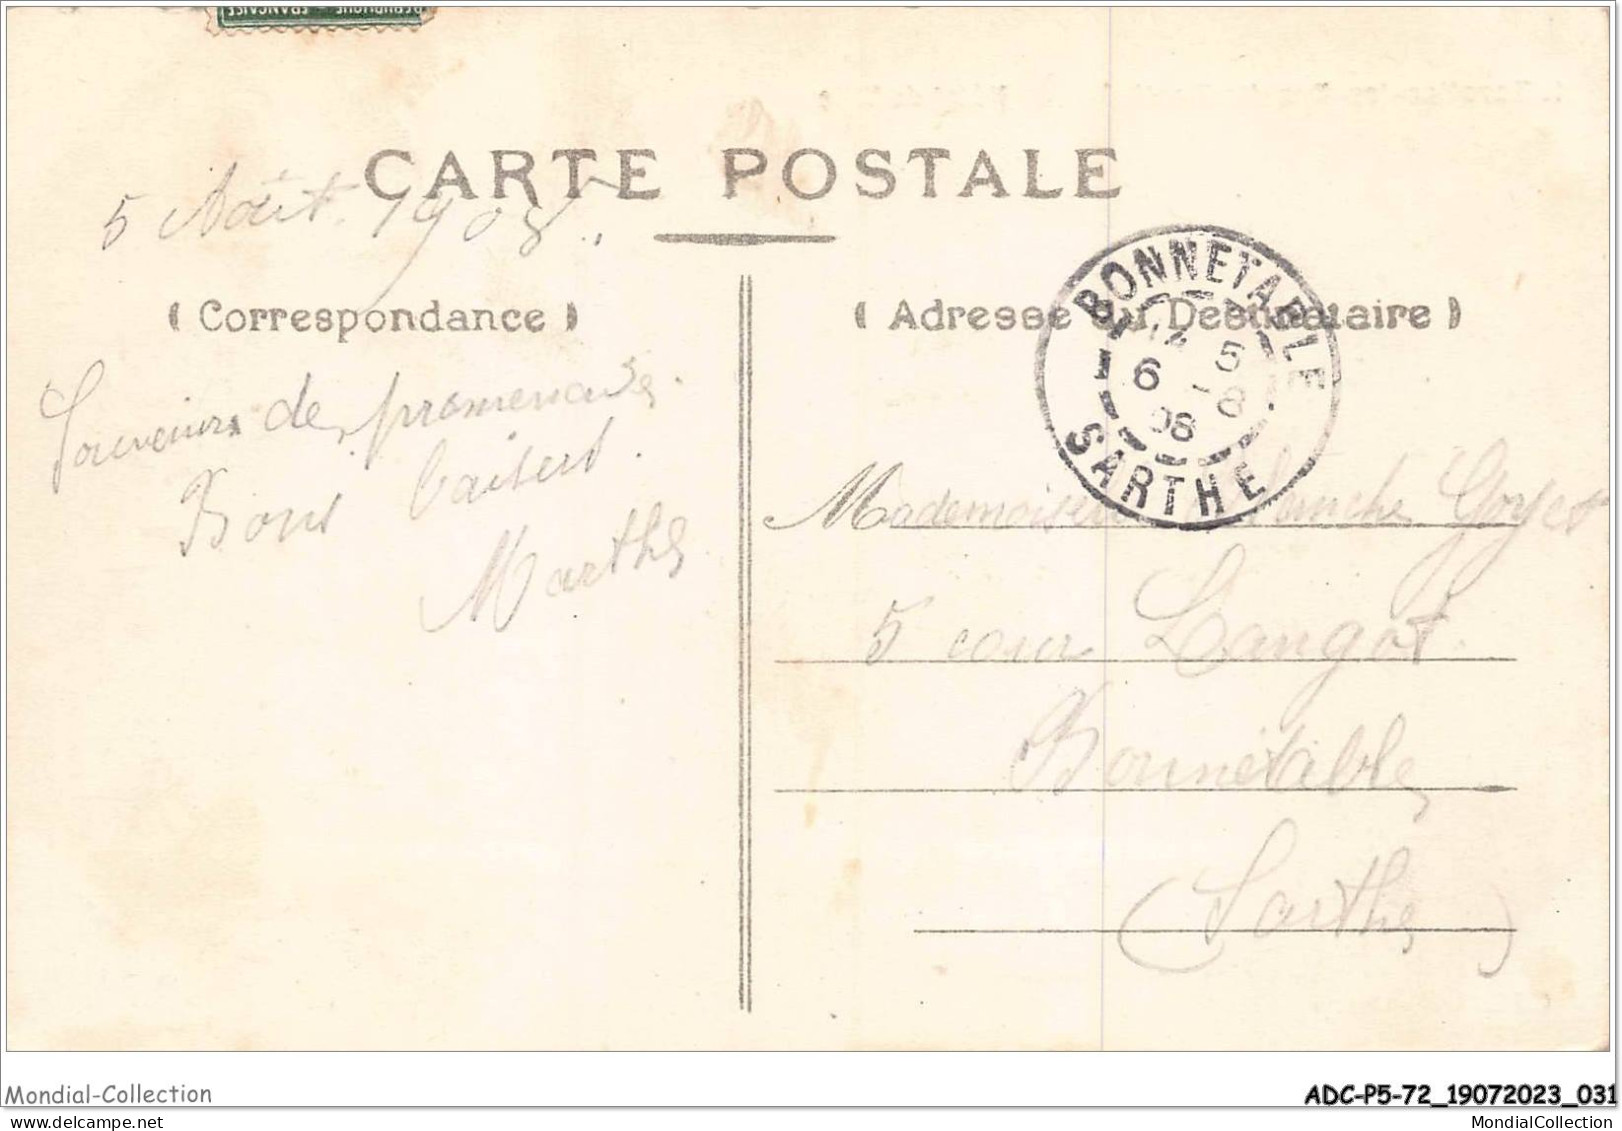 RÉPUBLIQUE FRANÇAISE
CARTE POSTALE
5 Août 1908.
( Correspondance )
( Adresse du Destinataire )
BONNETABLE
6 -8
08
SARTHE
Souvenirs de promenade.
Bons baisers.
Marthe
Mademoiselle Blanche
5 cour Langot
Bonnétable
(Sarthe)
Mondial-Collection
ADC-P5-72_19072023_031
www.delcampe.net
MondialCollection